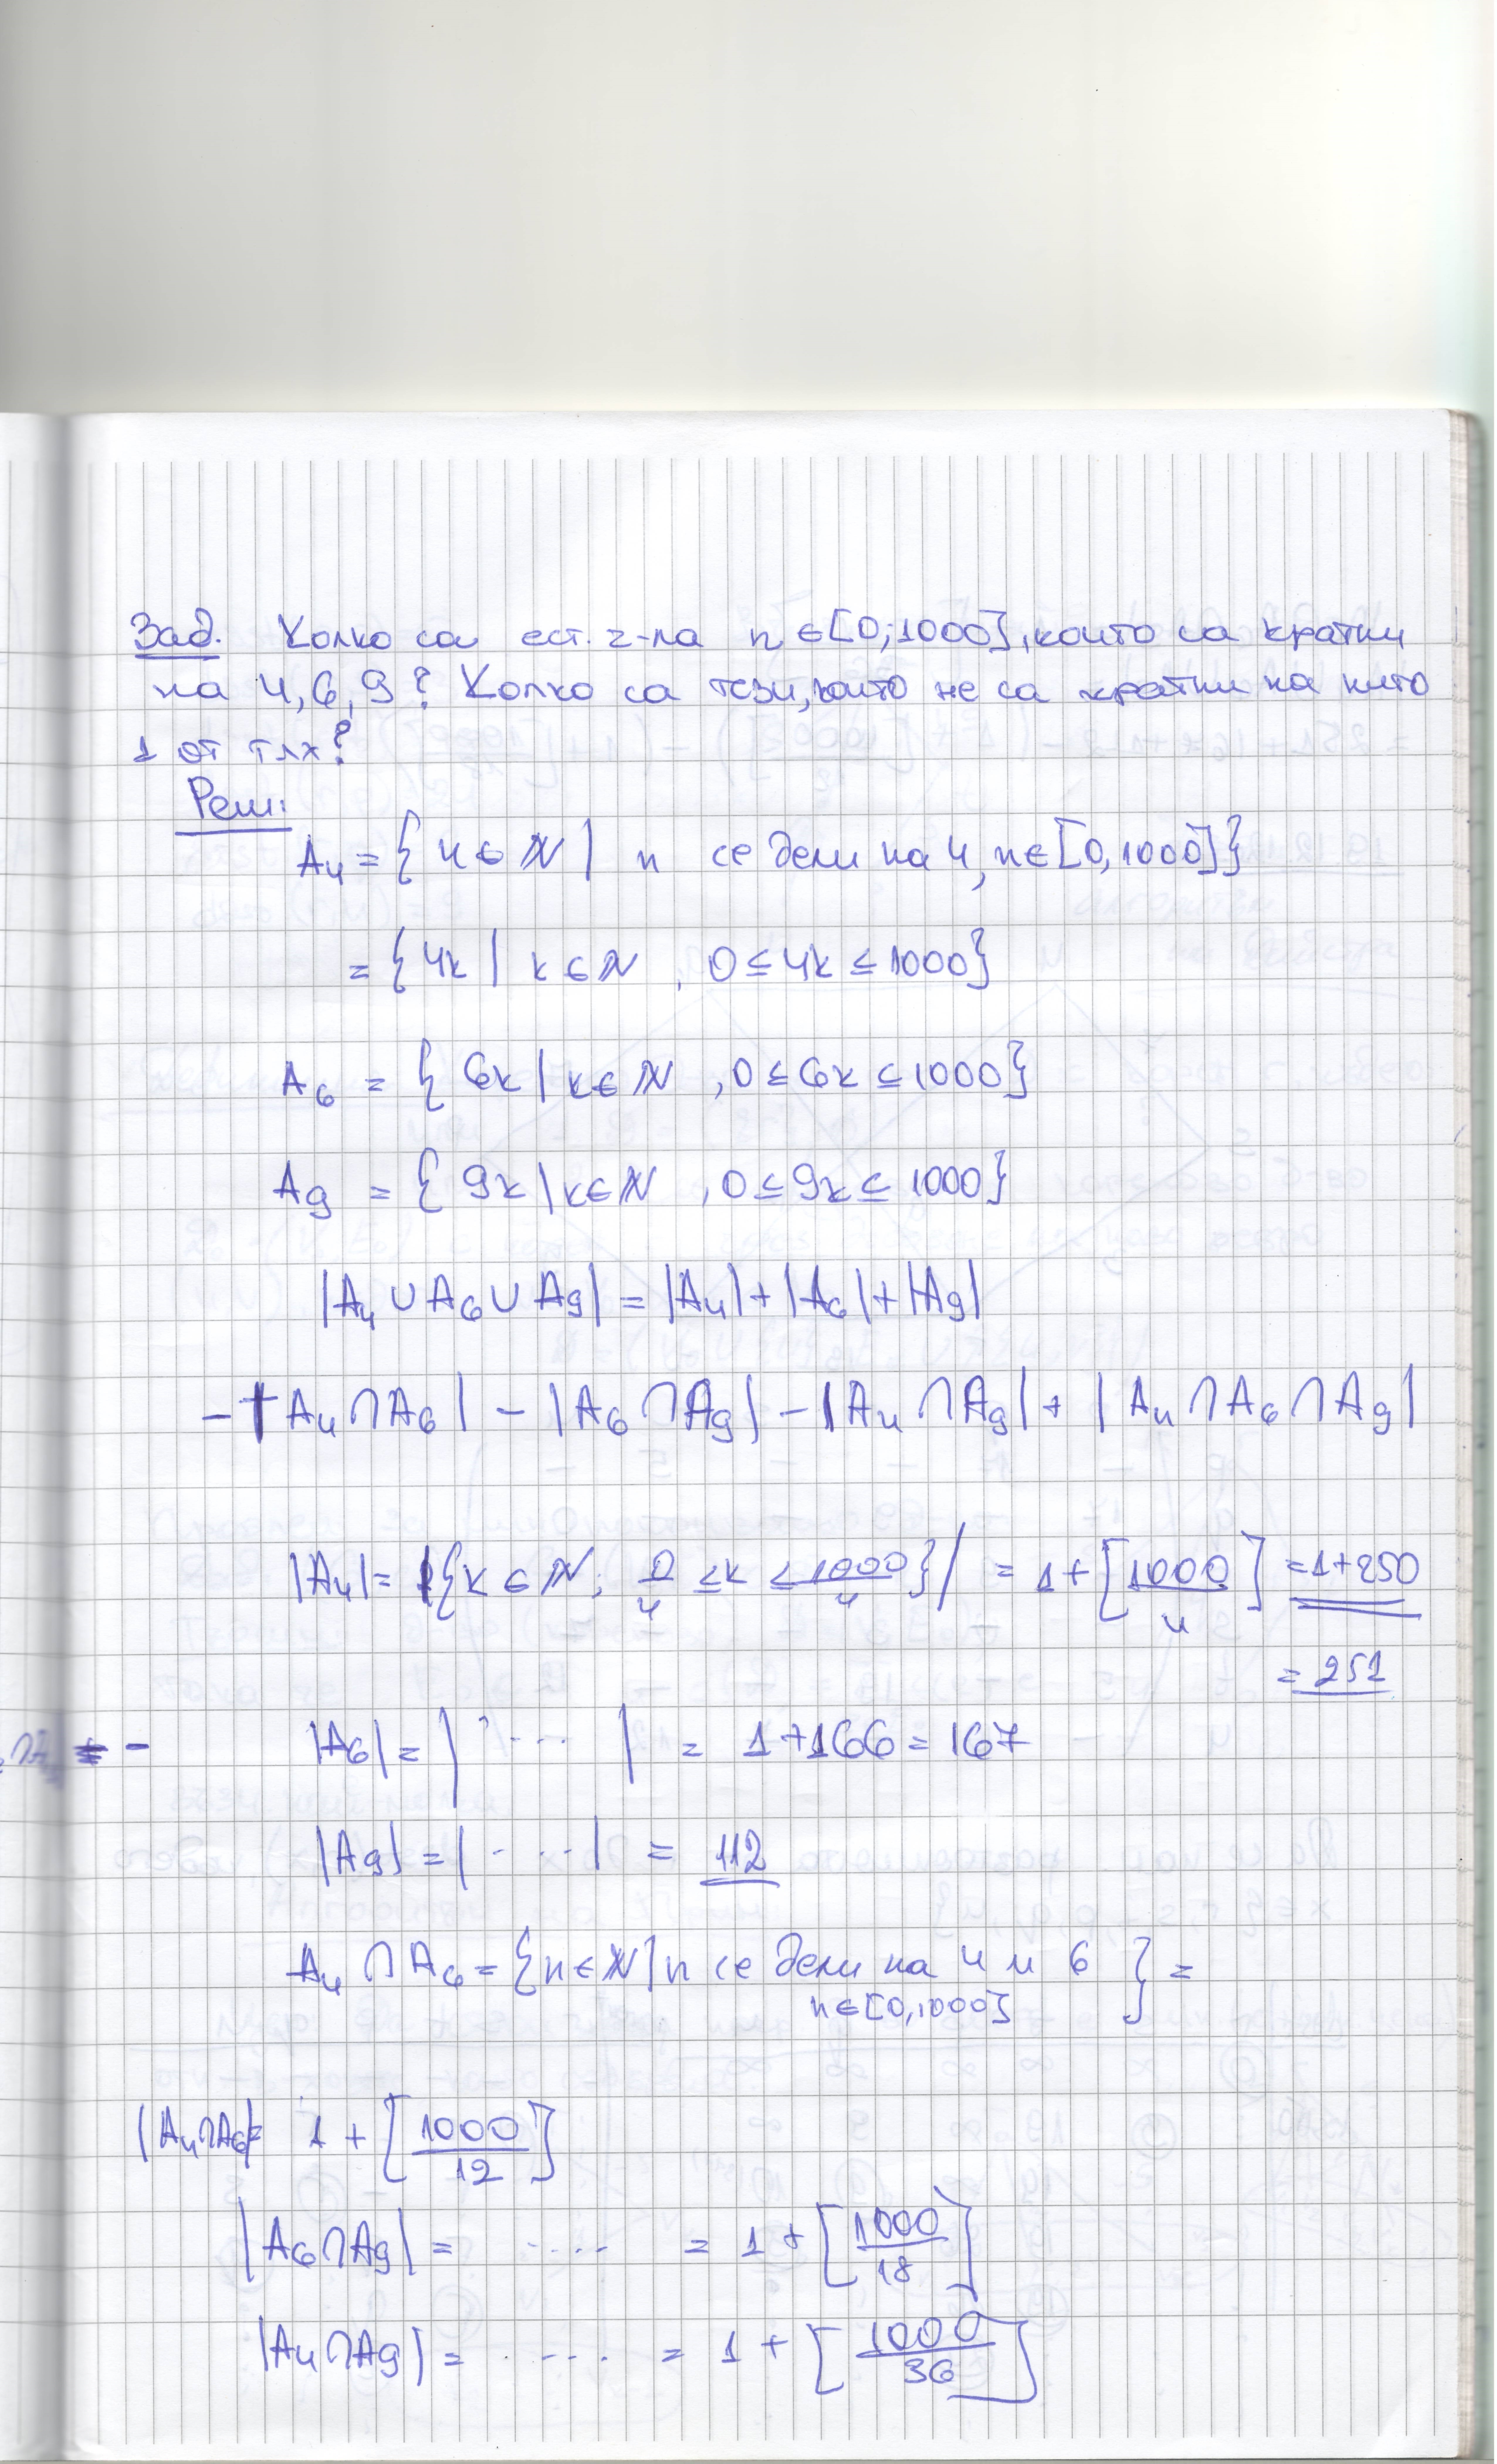 Зад. Колко са ест. ч-ла n ∈ [0; 1000], които са кратни
на 4, 6, 9? Колко са тези, които не са кратни на нито
1 от тях?
Реш:
A₄ = { n ∈ ℕ | n се дели на 4, n ∈ [0, 1000] }
= { 4k | k ∈ ℕ , 0 ≤ 4k ≤ 1000 }
A₆ = { 6k | k ∈ ℕ , 0 ≤ 6k ≤ 1000 }
A₉ = { 9k | k ∈ ℕ , 0 ≤ 9k ≤ 1000 }
|A₄ ∪ A₆ ∪ A₉| = |A₄| + |A₆| + |A₉|
- |A₄ ∩ A₆| - |A₆ ∩ A₉| - |A₄ ∩ A₉| + |A₄ ∩ A₆ ∩ A₉|
|A₄| = |{ k ∈ ℕ; 0/4 ≤ k ≤ 1000/4 }| = 1 + [1000/4] = 1+250
= 251
|A₆| = | ... | = 1+166 = 167
|A₉| = | ... | = 112
A₄ ∩ A₆ = { n ∈ ℕ | n се дели на 4 и 6 } =
n ∈ [0, 1000]
|A₄∩A₆| = 1 + [1000/12]
|A₆∩A₉| = .... = 1 + [1000/18]
|A₄∩A₉| = .... = 1 + [1000/36]